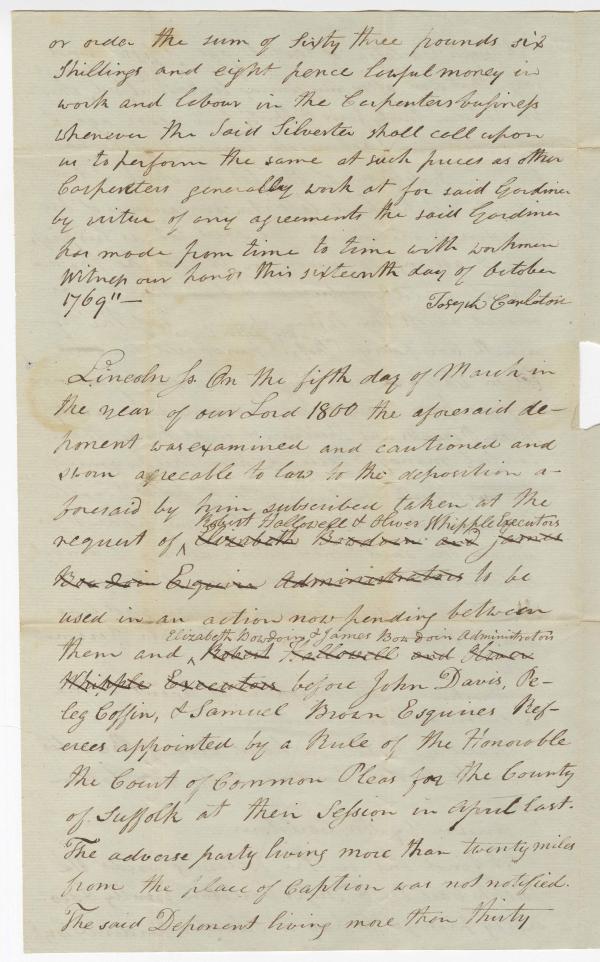 or order the sum of Sixty three pounds six
Shillings and eight pence lawful money in
work and labour in the Carpenters business
whenever the Said Silvester shall call upon
us to perform the same at such prices as other
Carpenters generally work at for said Gardiner
by virtue of any agreements the said Gardiner
has made from time to time with workmen
Witness our hands this sixteenth day of October
1769"—
Joseph Carleton
Lincoln Ss. On the fifth day of March in
the year of our Lord 1800 the aforesaid de-
ponent was examined and cautioned and
sworn agreeable to law to the deposition a-
foresaid by him subscribed taken at the
Robert Hallowell & Oliver Whipple Executors
request of ^ Elizabeth Bowdoin and James
Bowdoin Esquire Administrators to be
used in an action now pending between
Elizabeth Bowdoin & James Bowdoin Administrators
them and ^ Robert Hallowell and Oliver
Whipple Executors before John Davis, Pe-
leg Coffin, & Samuel Brown Esquires Ref-
erees appointed by a Rule of the Honorable
the Court of Common Pleas for the County
of Suffolk at their Session in April last.
The adverse party living more than twenty miles
from the place of Caption was not notified.
The said Deponent living more than thirty